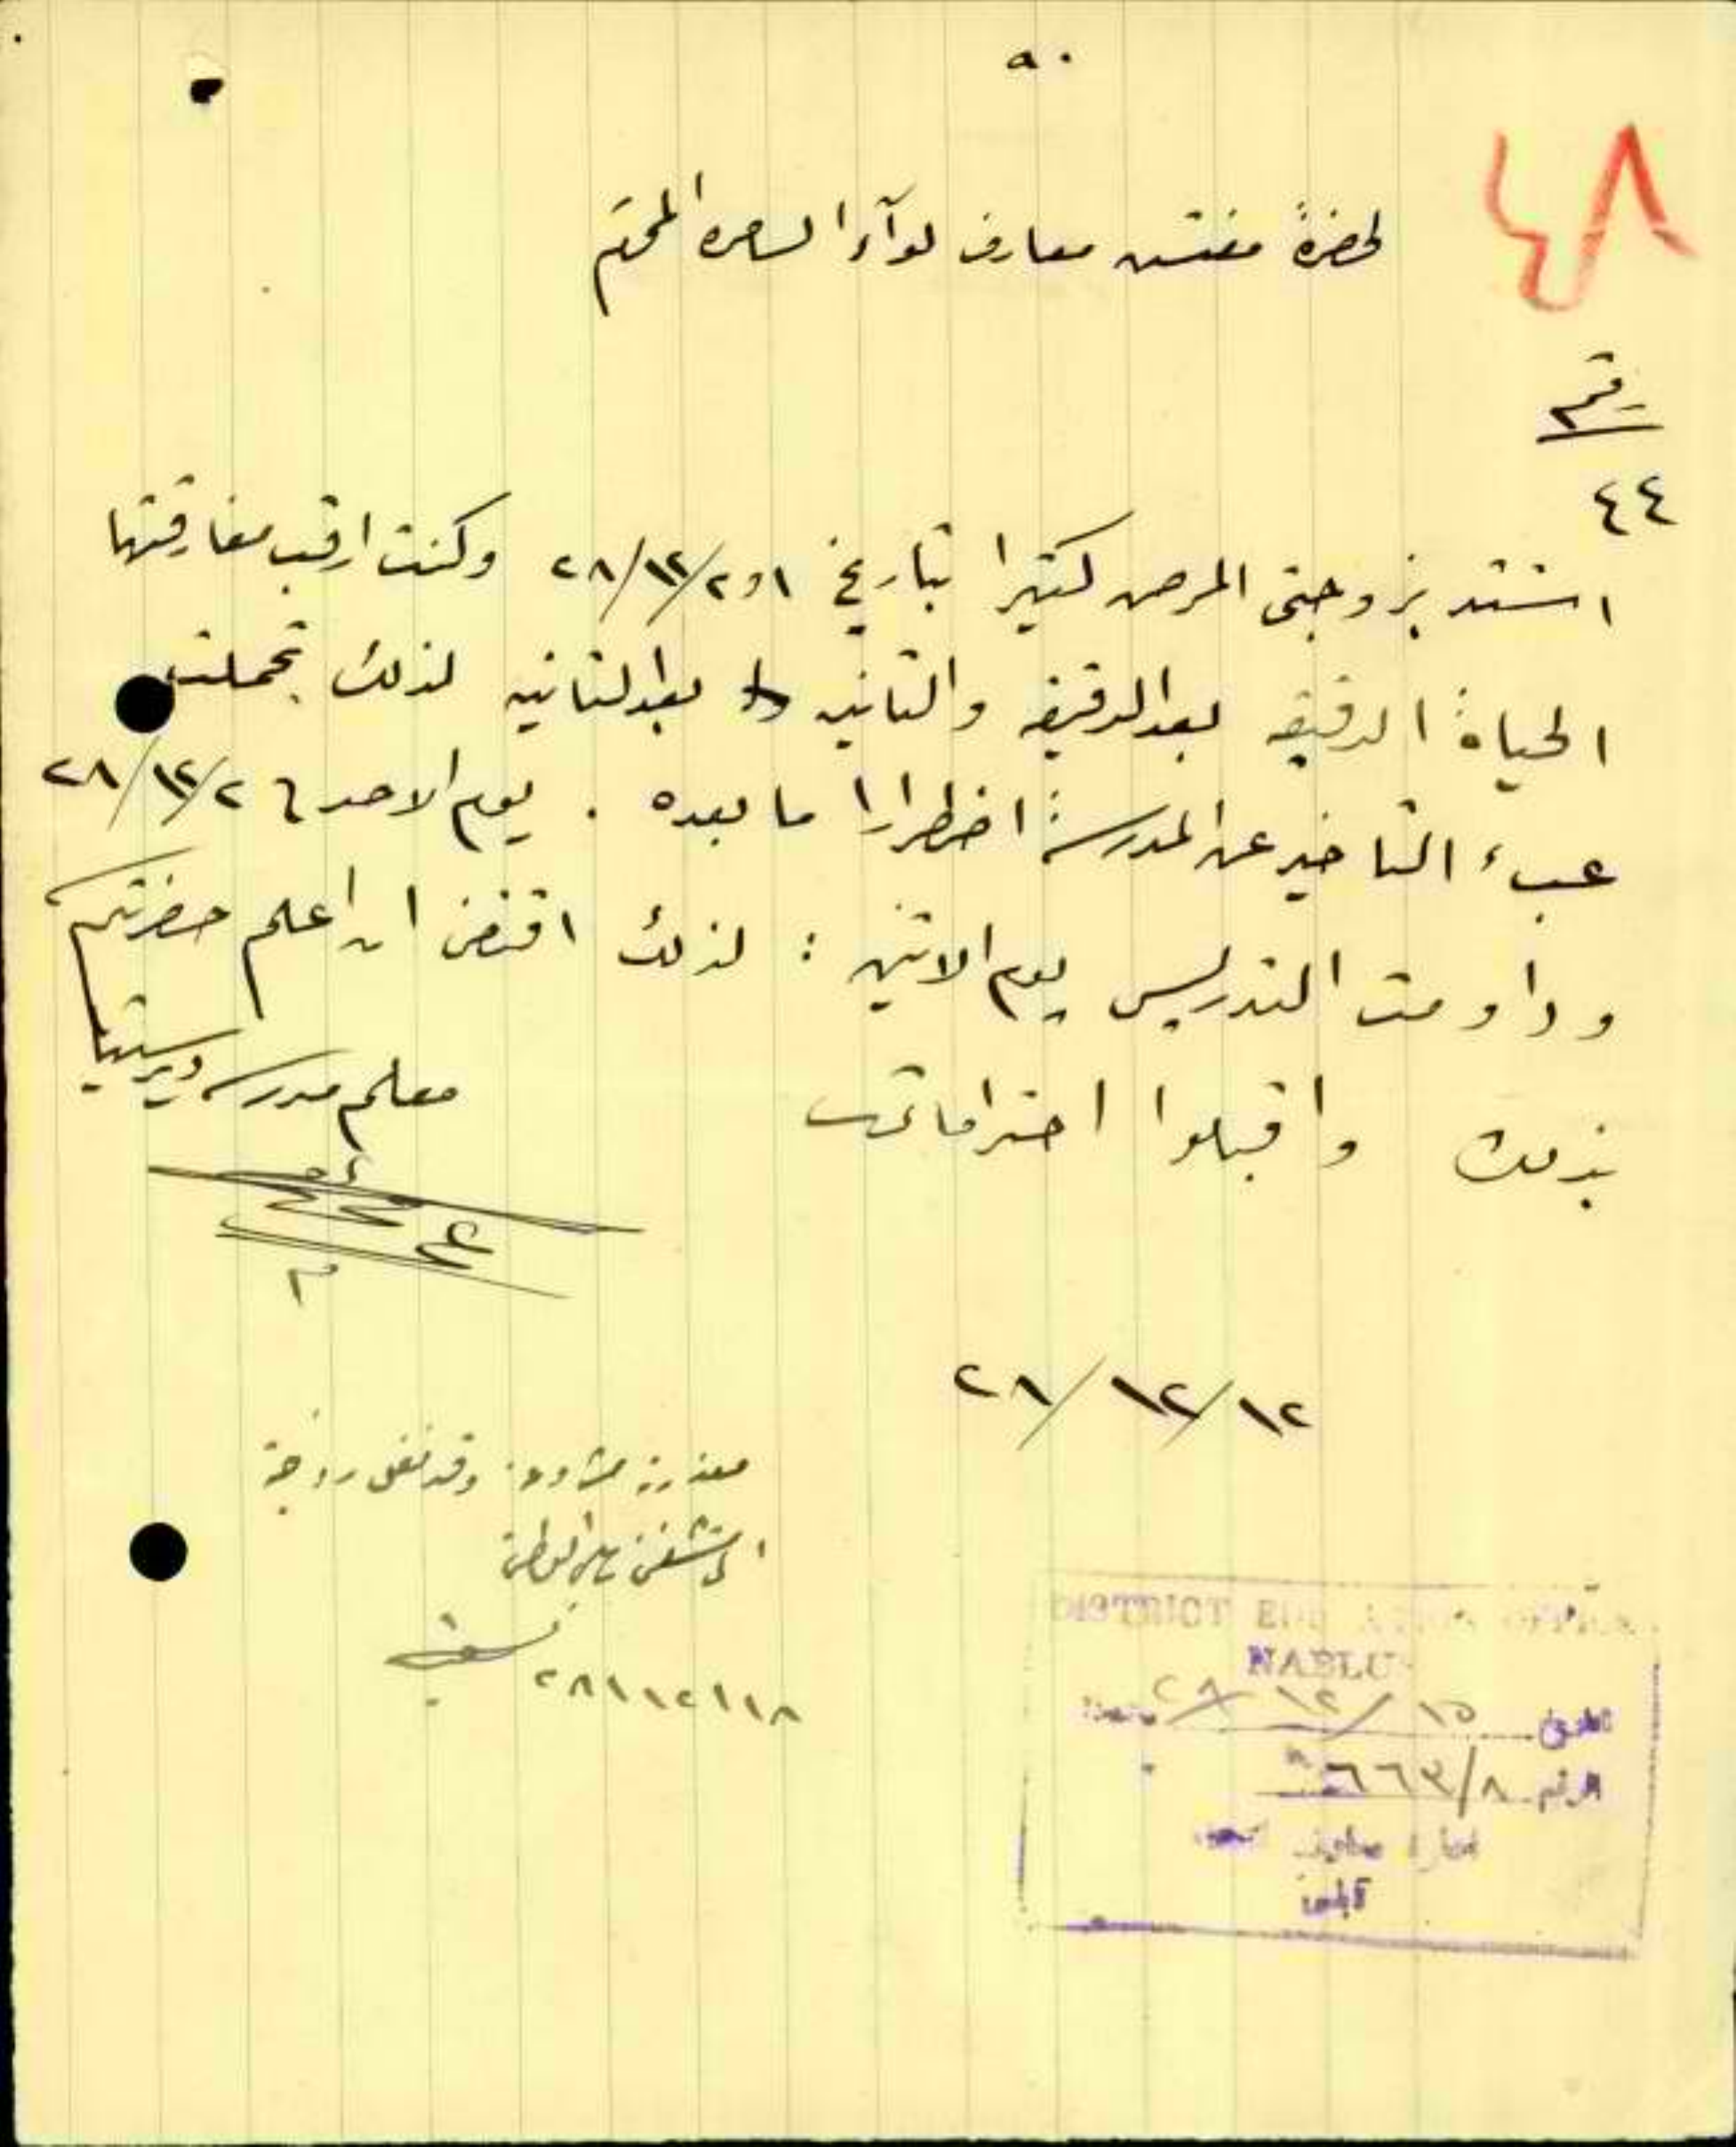 ٥٠
٤٨
لحضرة مفتش معارف لوآء السامره المحترم
رقم
٤٤
اشتد بزوجتي المرض كثيرا بتاريخ ١ و٢/١٢/٢٨ وكنت ارقب مفارقتها
الحياة الدقيقه بعد الدقيقه والثانيه بعد الثانيه لذلك تحملت
عبء التاخير عن المدرسة اضطرارا ما بعده . يوم الاحد ٢/١٢/٢٨
وداومت التدريس يوم الاثنين : لذلك اقتضى ان اعلم حضرتكم
بذلك واقبلوا احتراماتي
معلم مدرسة ديرستيا
١٢/١٢/٢٨
معذرته وقد نقل زوجته
الى مستشفى نابلس الوطني
١٨/١٢/٢٨
DISTRICT EDUCATION OFFICE
NABLUS
التاريخ ١٥/١٢/٢٨
الرقم ٨/٦٦٣
نابلس